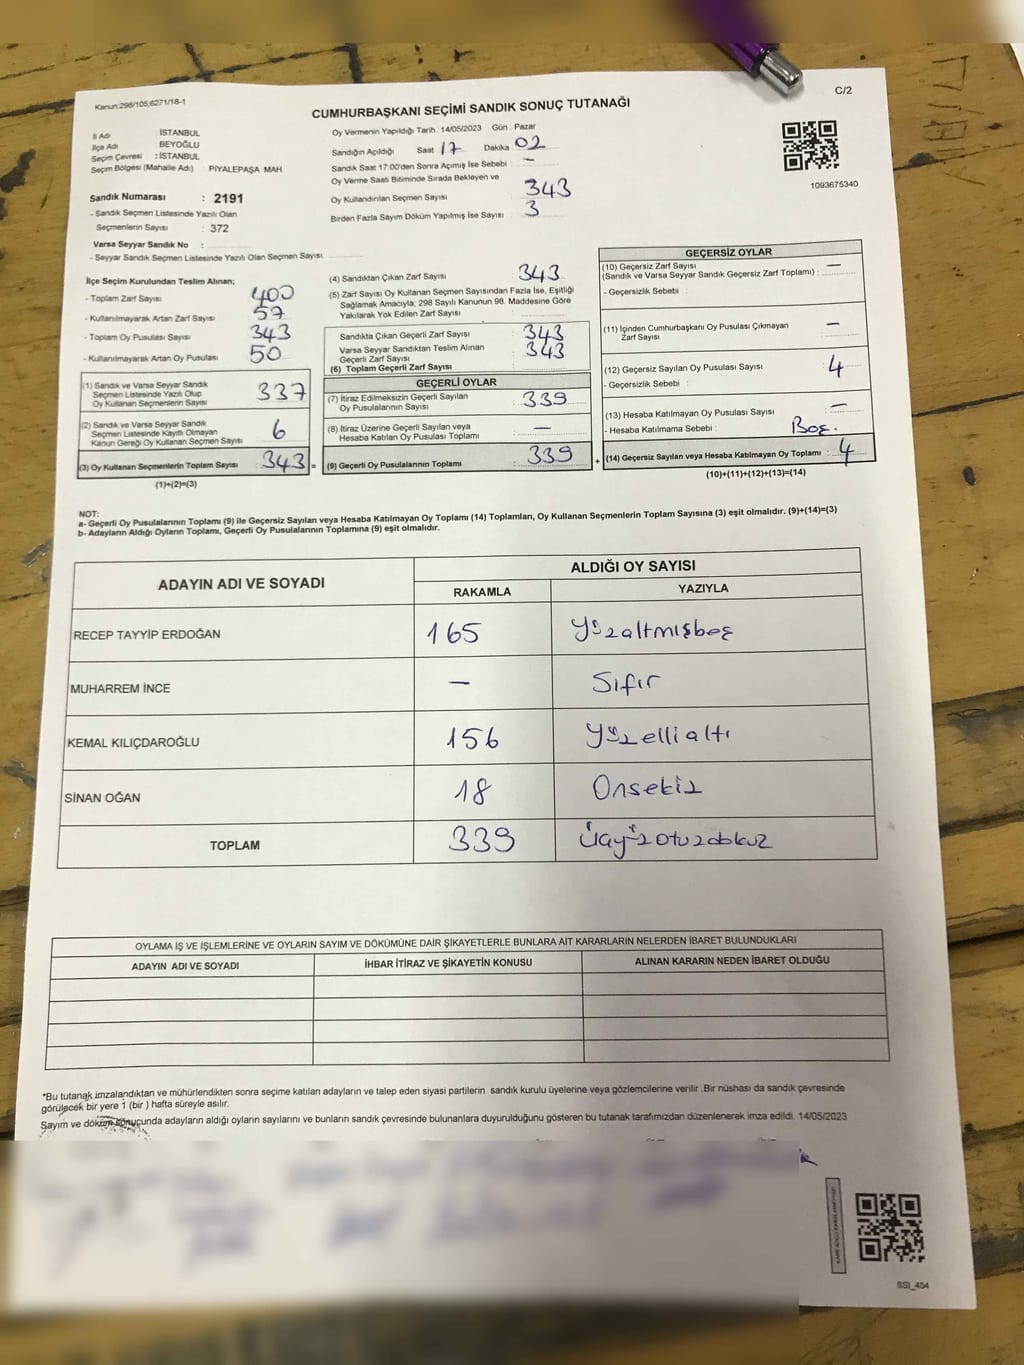 Kanun:298/105;6271/18-1
C/2
CUMHURBAŞKANI SEÇİMİ SANDIK SONUÇ TUTANAĞI
İl Adı : İSTANBUL
İlçe Adı : BEYOĞLU
Seçim Çevresi : İSTANBUL
Seçim Bölgesi (Mahalle Adı) PİYALEPAŞA MAH
Sandık Numarası : 2191
- Sandık Seçmen Listesinde Yazılı Olan
Seçmenlerin Sayısı : 372
Varsa Seyyar Sandık No :
- Seyyar Sandık Seçmen Listesinde Yazılı Olan Seçmen Sayısı
Oy Vermenin Yapıldığı Tarih : 14/05/2023 Gün : Pazar
Sandığın Açıldığı Saat 17 Dakika 02
Sandık Saat 17:00'den Sonra Açımış İse Sebebi : —
Oy Verme Saati Bitiminde Sırada Bekleyen ve
Oy Kullandırılan Seçmen Sayısı : 343
Birden Fazla Sayım Döküm Yapılmış İse Sayısı : 3
1093675340
İlçe Seçim Kurulundan Teslim Alınan;
- Toplam Zarf Sayısı 400
- Kullanılmayarak Artan Zarf Sayısı 57
- Toplam Oy Pusulası Sayısı 343
- Kullanılmayarak Artan Oy Pusulası 50
(1) Sandık ve Varsa Seyyar Sandık
Seçmen Listesinde Yazılı Olup
Oy Kullanan Seçmenlerin Sayısı 337
(2) Sandık ve Varsa Seyyar Sandık
Seçmen Listesinde Kayıtlı Olmayan
Kanun Gereği Oy Kullanan Seçmen Sayısı 6
(3) Oy Kullanan Seçmenlerin Toplam Sayısı : 343 =
(1)+(2)=(3)
(4) Sandıktan Çıkan Zarf Sayısı : 343
(5) Zarf Sayısı Oy Kullanan Seçmen Sayısından Fazla İse, Eşitliği
Sağlamak Amacıyla; 298 Sayılı Kanunun 98. Maddesine Göre
Yakılarak Yok Edilen Zarf Sayısı :
Sandıkta Çıkan Geçerli Zarf Sayısı : 343
Varsa Seyyar Sandıktan Teslim Alınan
Geçerli Zarf Sayısı : 343
(6) Toplam Geçerli Zarf Sayısı :
GEÇERLİ OYLAR
(7) İtiraz Edilmeksizin Geçerli Sayılan
Oy Pusulalarının Sayısı : 339
(8) İtiraz Üzerine Geçerli Sayılan veya
Hesaba Katılan Oy Pusulası Toplamı : —
(9) Geçerli Oy Pusulalarının Toplamı : 339 +
GEÇERSİZ OYLAR
(10) Geçersiz Zarf Sayısı —
(Sandık ve Varsa Seyyar Sandık Geçersiz Zarf Toplamı) :
- Geçersizlik Sebebi :
(11) İçinden Cumhurbaşkanı Oy Pusulası Çıkmayan
Zarf Sayısı : —
(12) Geçersiz Sayılan Oy Pusulası Sayısı : 4
- Geçersizlik Sebebi :
(13) Hesaba Katılmayan Oy Pusulası Sayısı : —
- Hesaba Katılmama Sebebi : Boş.
(14) Geçersiz Sayılan veya Hesaba Katılmayan Oy Toplamı : 4
(10)+(11)+(12)+(13)=(14)
NOT:
a- Geçerli Oy Pusulalarının Toplamı (9) ile Geçersiz Sayılan veya Hesaba Katılmayan Oy Toplamı (14) Toplamları, Oy Kullanan Seçmenlerin Toplam Sayısına (3) eşit olmalıdır. (9)+(14)=(3)
b- Adayların Aldığı Oyların Toplamı, Geçerli Oy Pusulalarının Toplamına (9) eşit olmalıdır.
ADAYIN ADI VE SOYADI
ALDIĞI OY SAYISI
RAKAMLA YAZIYLA
RECEP TAYYİP ERDOĞAN 165 Yüzaltmışbeş
MUHARREM İNCE — Sıfır
KEMAL KILIÇDAROĞLU 156 Yüzellialtı
SİNAN OĞAN 18 Onsekiz
TOPLAM 339 Üçyüzotuzdokuz
OYLAMA İŞ VE İŞLEMLERİNE VE OYLARIN SAYIM VE DÖKÜMÜNE DAİR ŞİKAYETLERLE BUNLARA AİT KARARLARIN NELERDEN İBARET BULUNDUKLARI
ADAYIN ADI VE SOYADI İHBAR İTİRAZ VE ŞİKAYETİN KONUSU ALINAN KARARIN NEDEN İBARET OLDUĞU
*Bu tutanak imzalandıktan ve mühürlendikten sonra seçime katılan adayların ve talep eden siyasi partilerin sandık kurulu üyelerine veya gözlemcilerine verilir .Bir nüshası da sandık çevresinde
görülecek bir yere 1 (bir ) hafta süreyle asılır.
Sayım ve döküm sonucunda adayların aldığı oyların sayılarını ve bunların sandık çevresinde bulunanlara duyurulduğunu gösteren bu tutanak tarafımızdan düzenlenerek imza edildi. 14/05/2023
SSİ_404